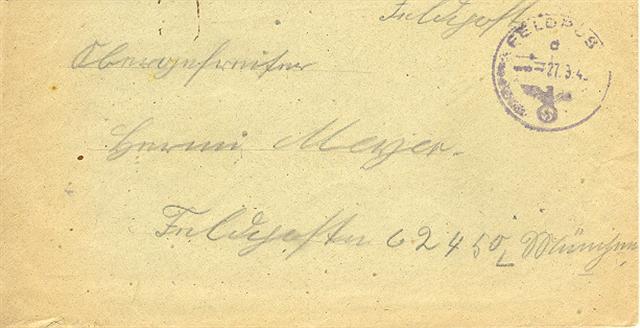 Feldpost
FELDPOS
d
27.3.4
Obergefreiter
Meyer.
Feldpostn 62450 L München